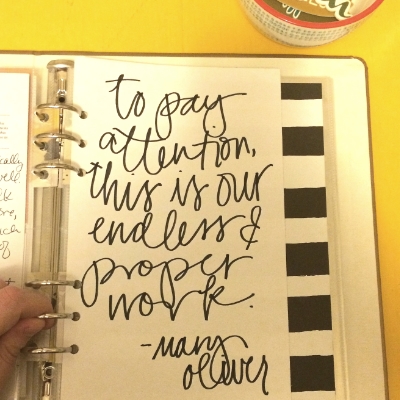 to pay
attention,
this is our
endless &
proper
work.
-mary
oliver